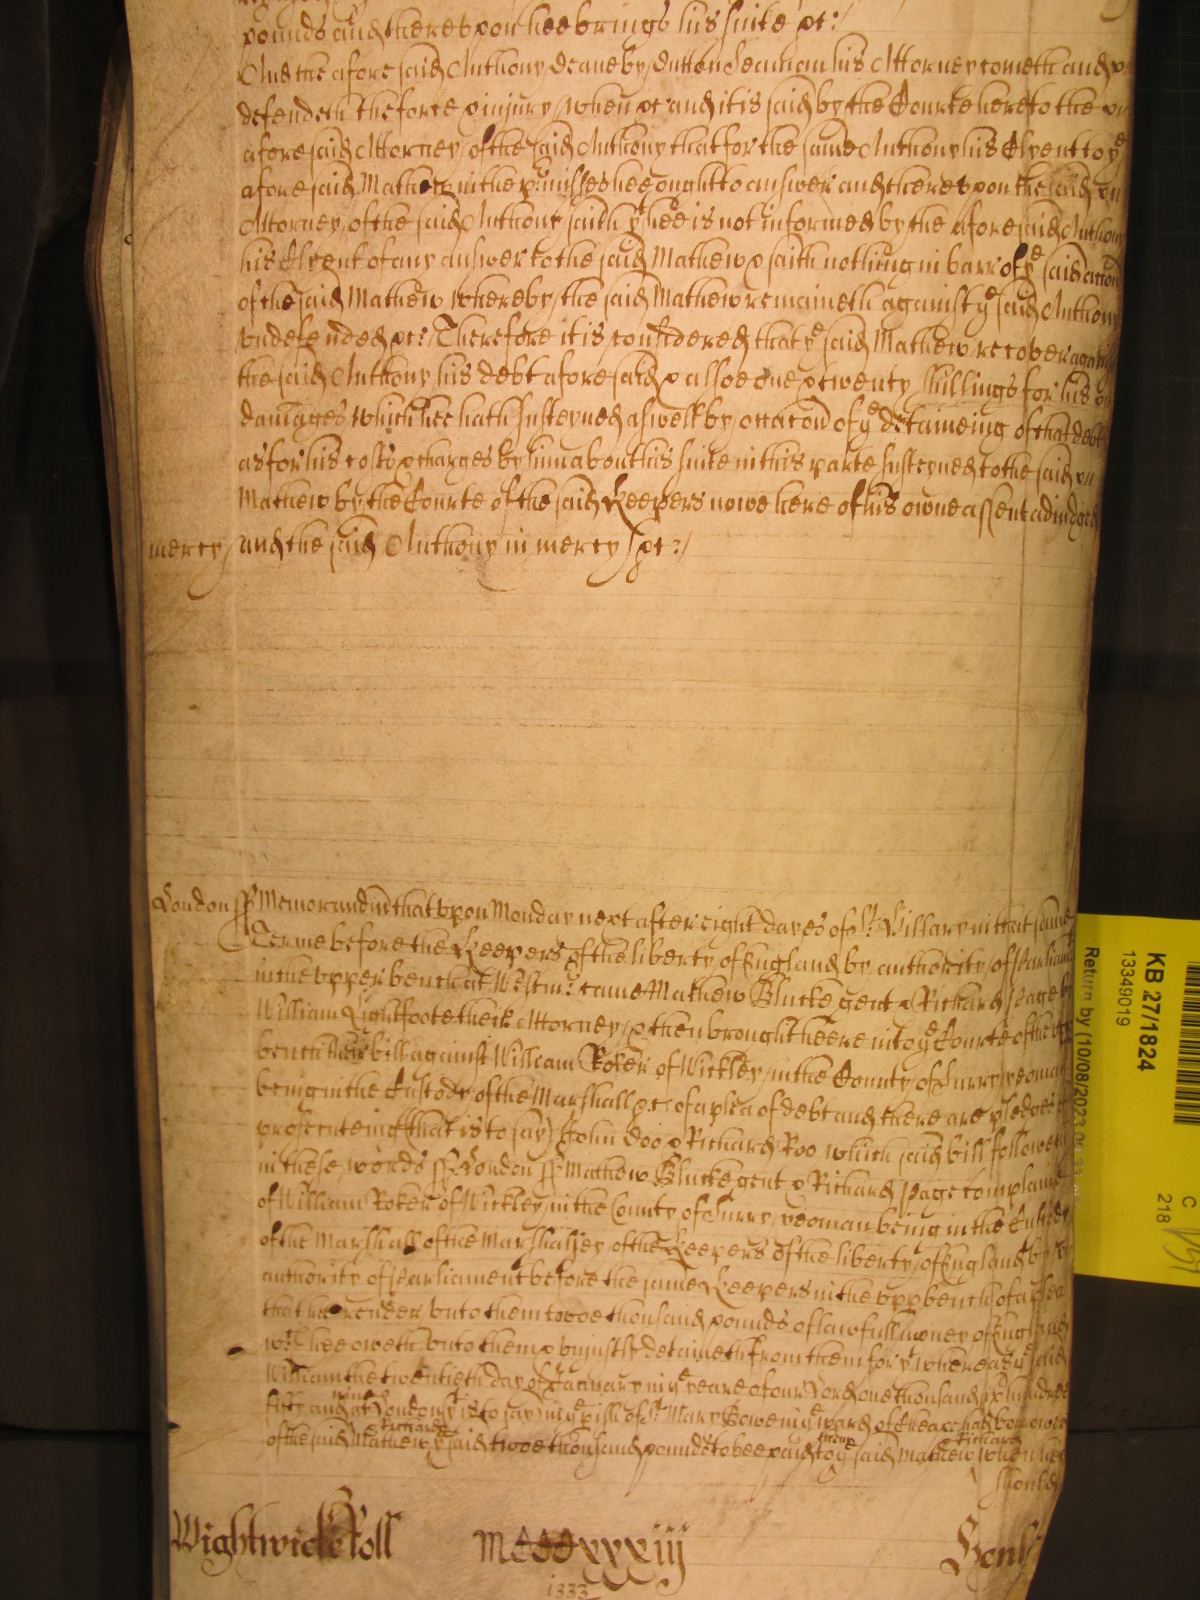 pounds and thereupon hee brings his suite &c:/
And the aforesaid Anthony Deane by Dutton Seaman his Attorney cometh and
defendeth the force & injury when &c and it is said by the Courte here to the
aforesaid Attorney of the said Anthony that for the same Anthony his Clyent to ye
aforesaid Mathew in the p'misses hee ought to answer and thereupon the said
Attorney of the said Anthony saith yt hee is not informed by the aforesaid Anthony
his Clyent of any answer to the said Mathew & saith nothing in barr of ye said accon
of the said Mathew whereby the said Mathew remaineth against ye said Anthony
undefended &c: Therefore it is considered that ye said Mathew recover against
the said Anthony his debt aforesaid & alsoe one & twenty shillings for his
damages which hee hath susteyned aswell by occacon of ye detaineing of that debt
as for his costs & charges by him about his suite in this parte susteyned to the said
Mathew by the Courte of the said Keepers nowe here of his owne assent adiudged
mercy/ and the said Anthony in mercy &c:/
London ss Memorandu that upon Monday next after eight dayes of St. Hillary in that same
Terme before the Keepers of the liberty of England by authority of Parliamt
in the upper bench at Westmr: came Mathew Blucke gent & Richard Page by
William Lightfoote their Attorney & then brought heere into ye Courte of the upp
bench their bill against William Roker of Wickley in the County of Surry yeoman
being in the Custody of the Marshall &c: of a plea of debt and there are pledges of
prosecuteing (that is to say) John Doo & Richard Roo which said bill followeth
in these words ss London ss Mathew Blucke gent & Richard Page complaine
of William Roker of Wickley in the County of Surry yeoman being in the Custody
of the Marshall of the Marshalsey of the Keepers of the liberty of England by
authority of Parliament before the same Keepers in the upp bench of a plea
that hee render unto them twoe thousand pounds of lawfull money of England
wch hee oweth unto them & uniustly detaineth from them for yt whereas ye said
William the twentieth day of January in ye yeare of our Lord one thousand six hundred
fifty and at London yt is to say in ye pish of St. Mary Bowe in ye ward of Cheape had borrowed
of the said Mathew & Richard ye said twoe thousand pounds to bee paid to ye said Mathew & Richard when hee
should
Wightwicke Roll MCCCxxxiij Henl
1333
KB 27/1824
13349019
Return by (10/08/2023
C
218